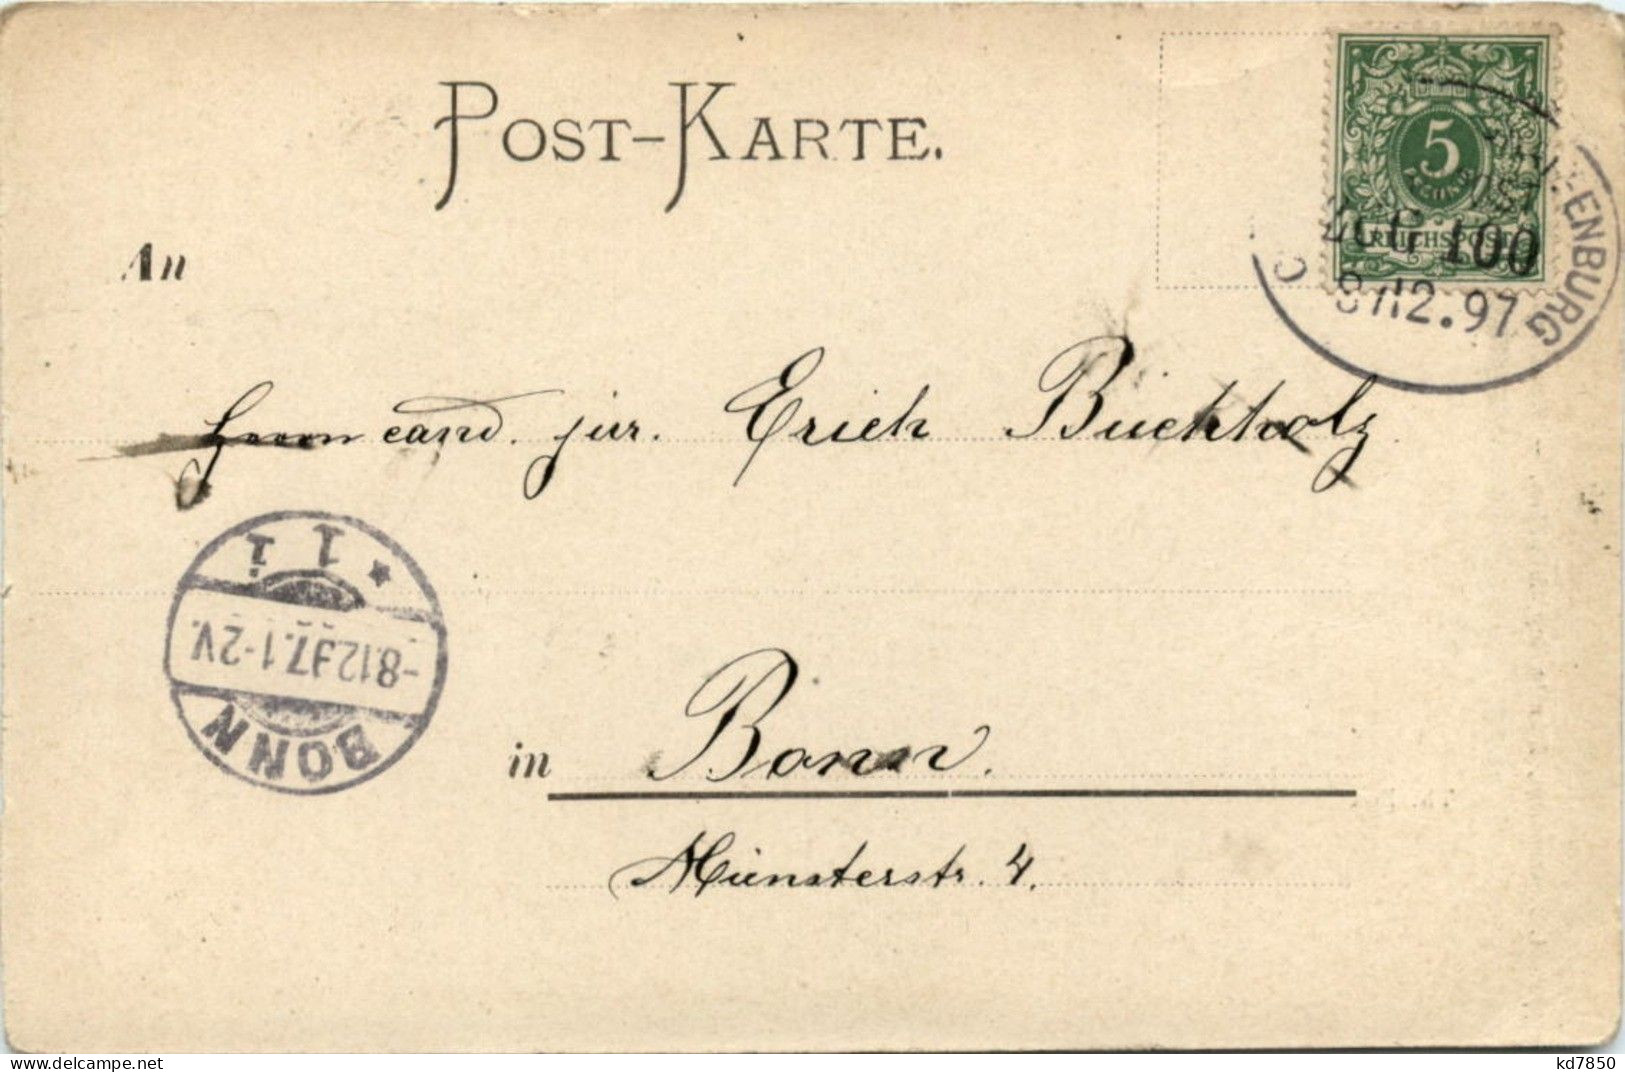 POST-KARTE.
5
PFENNIG
REICHSPOST
ENBURG
POST
ZUG 100
8.12.97
An
Herrn cand. jur. Erich Buchholz
* 1 i
-8.12.97.1-2V.
BONN
in Bonn.
Münsterstr. 4.
www.delcampe.net
kd7850